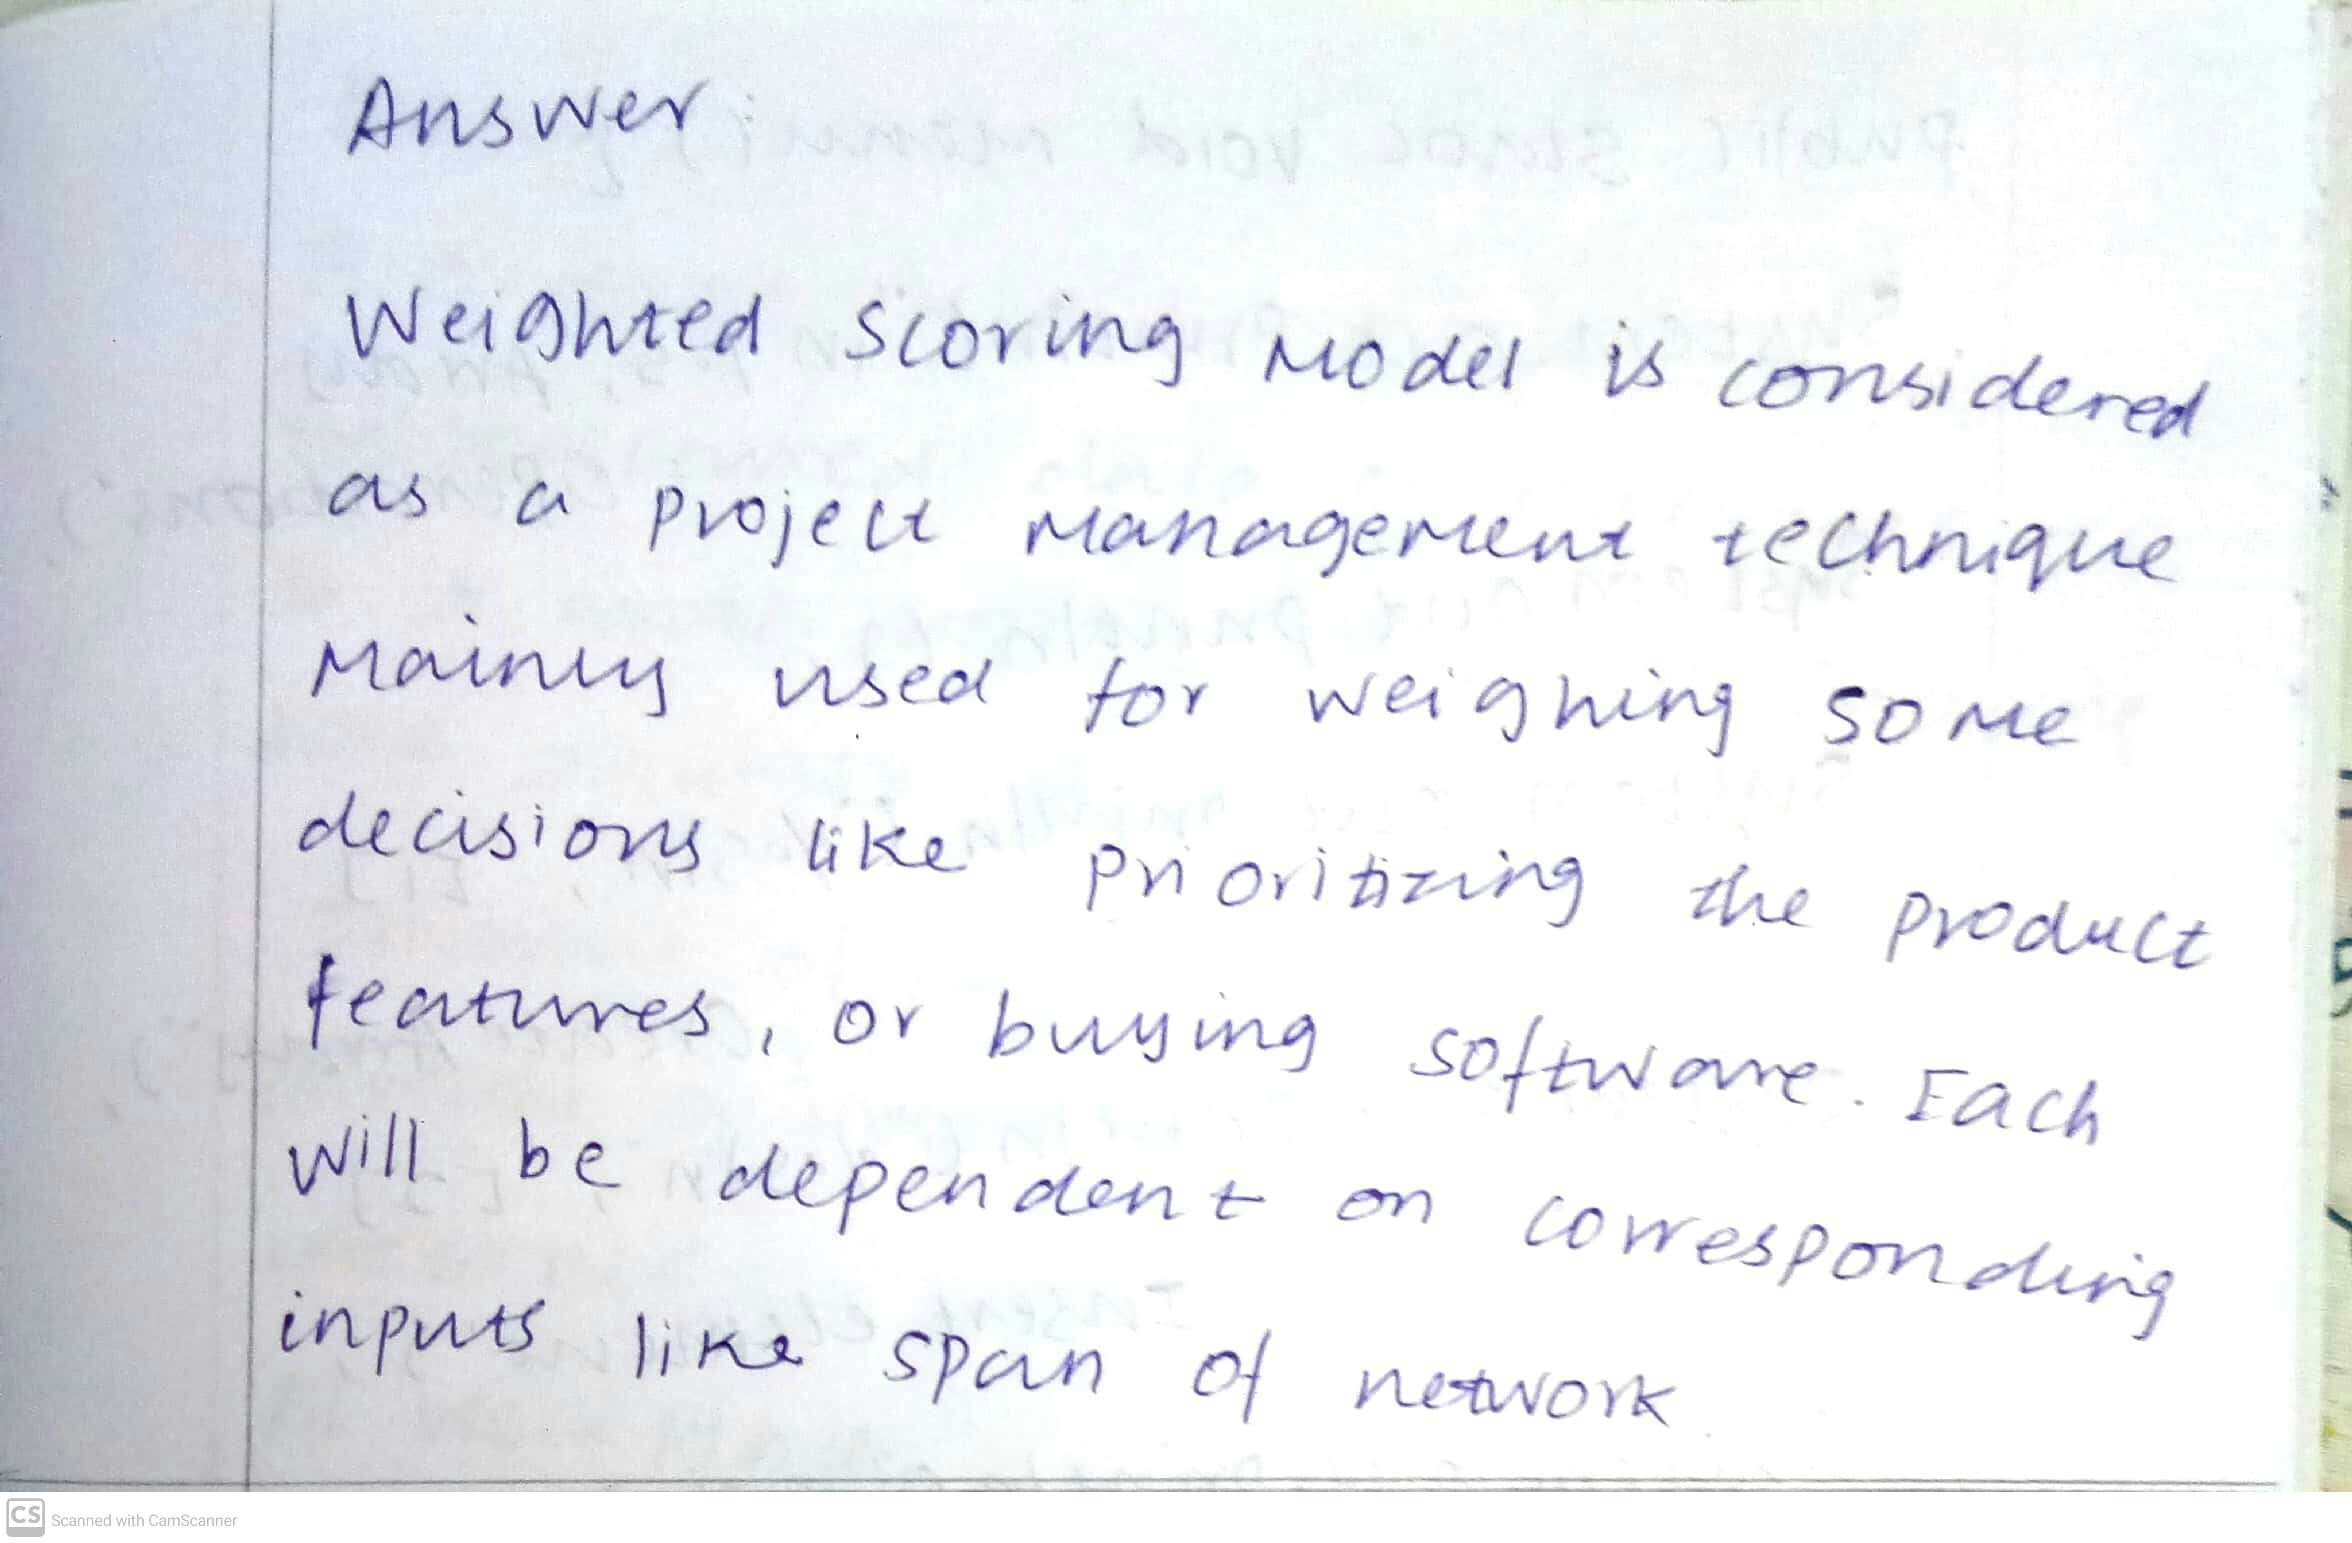 Answer
Weighted Scoring Model is considered
as a project Management technique
Mainly used for weighing some
decisions like prioritizing the product
features, or buying software. Each
will be dependent on corresponding
inputs like span of network
CS Scanned with CamScanner